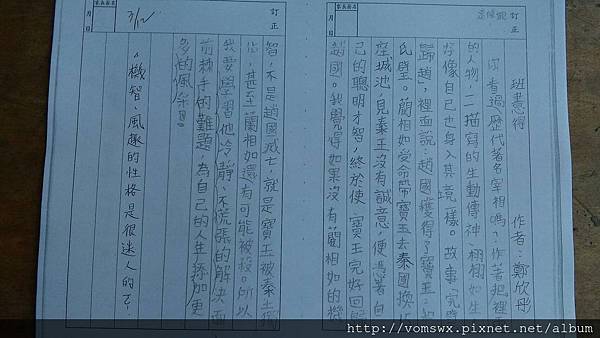 訂正
家長簽名
月 日
班惹得
作者:鄭欣丹
你看過歷代著名宰相嗎?作者把裡
的人物,一一描寫的生動傳神、栩栩如生
好像自己也身入其境樣。故事「完璧
歸趙」,裡面說:趙國獲得了寶玉:和
氏璧。藺相如受命帶寶玉去秦國換
座城池,見秦王沒有誠意,便憑著自
己的聰明才智,終於使寶玉完好回歸
趙國。我覺得如果沒有藺相如的機
訂正
家長簽名
月 日
3/12
智,不是趙國滅亡,就是寶玉被秦王
甚至藺相如還有可能被殺。所以
我要學習他冷靜、不慌張的解決面
前棘手的難題,為自己的人生添加更
多的佩
機智、風趣的性格是很迷人的
http://vomswx.pixnet.net/album